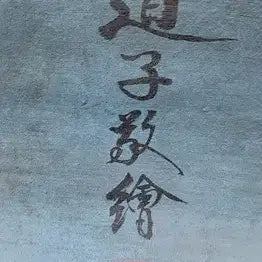 道子敬繪